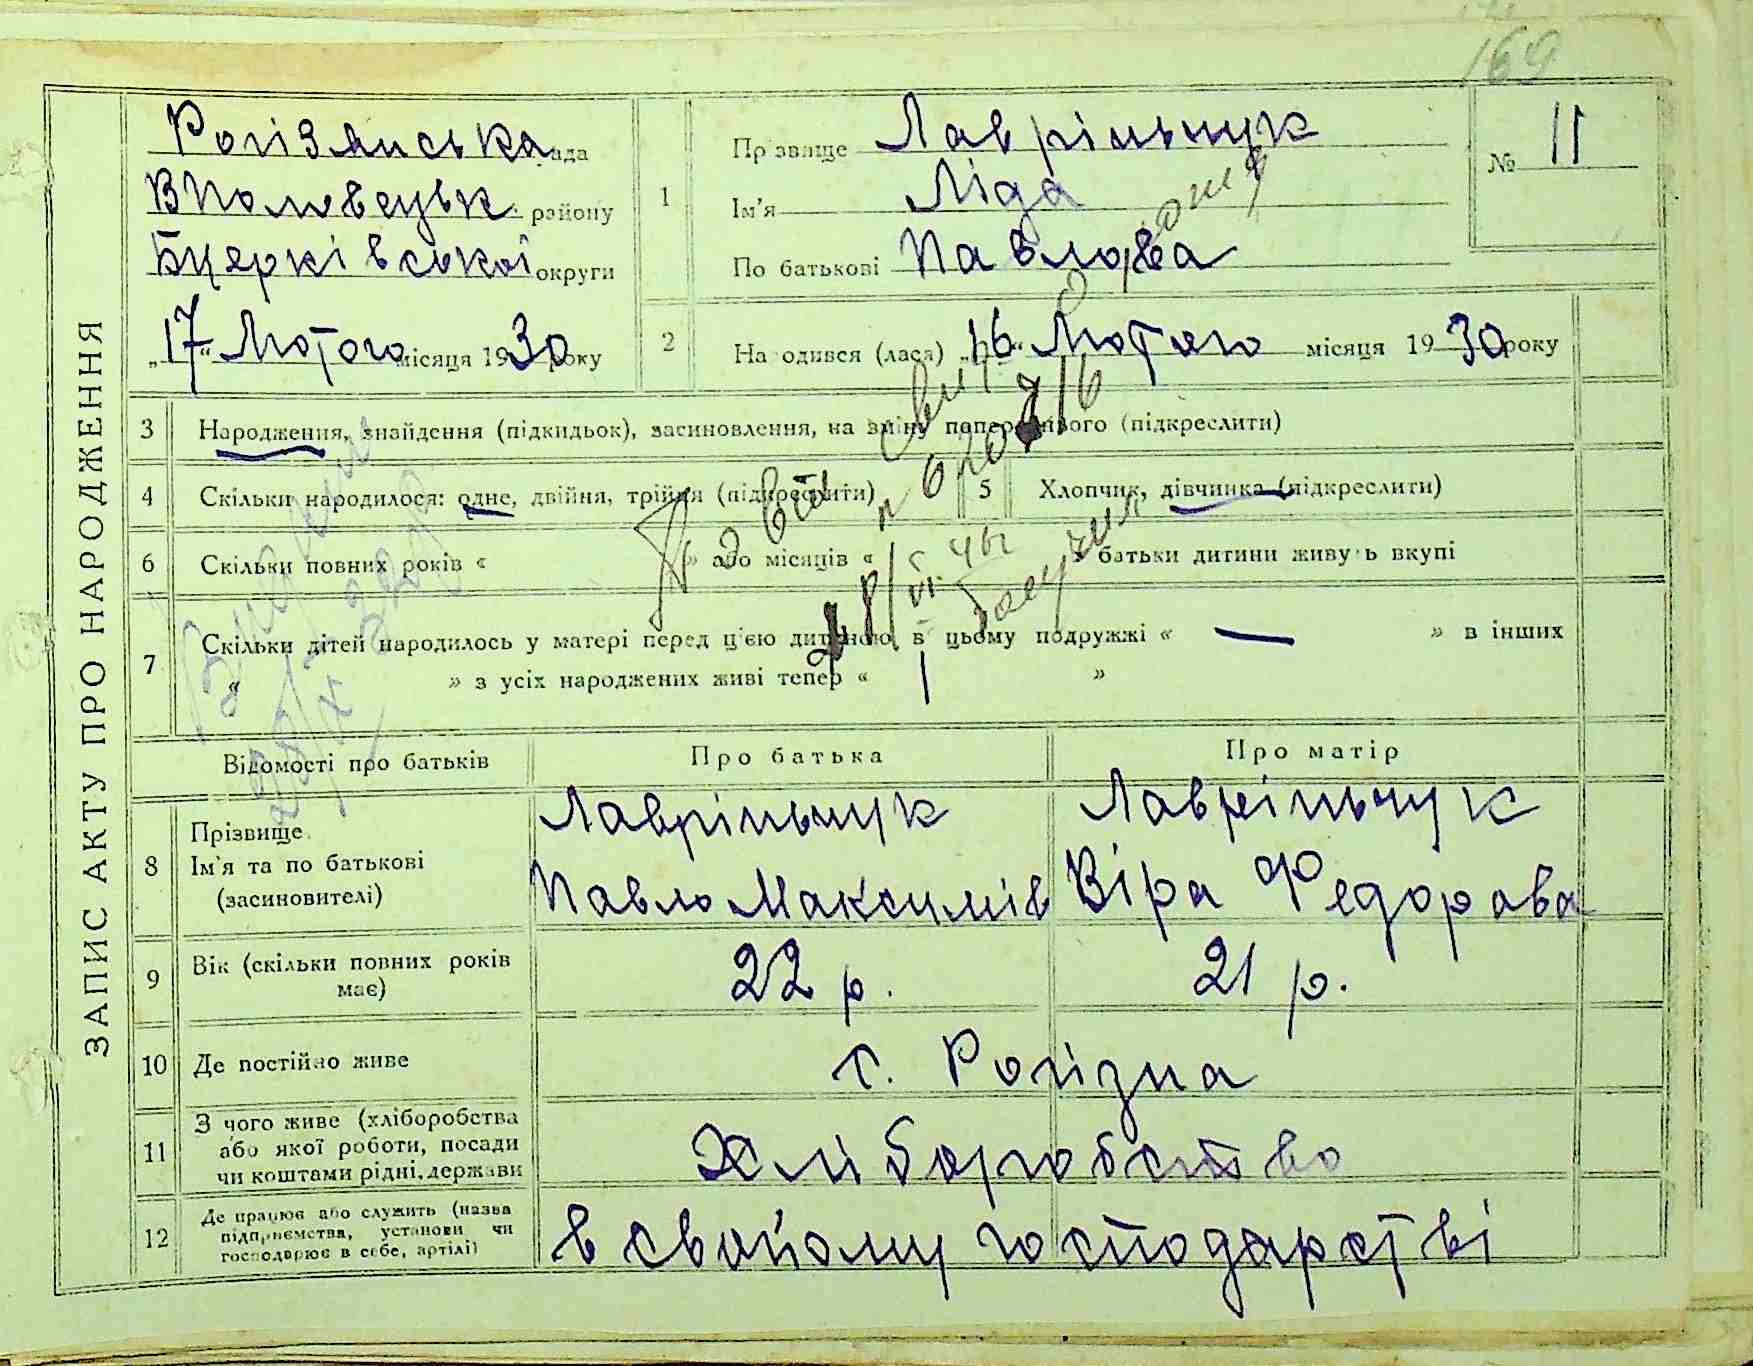 169
ЗАПИС АКТУ ПРО НАРОДЖЕННЯ
Рогізянська рада
ВПоловецьк. району
Бцерківської округи
„17“ Лютого місяця 1930 року
1
Прізвище Лавріньчук
Ім'я Ліда
По батькові Павлова
№ 11
2
Народився (лася) „16“ Лютого місяця 1930 року
3 Народження, знайдення (підкидьок), засиновлення, на зміну попереднього (підкреслити)
4 Скільки народилося: одне, двійня, трійня (підкреслити)
5 Хлопчик, дівчинка (підкреслити)
6 Скільки повних років « » або місяців « » батьки дитини живуть вкупі
7 Скільки дітей народилось у матері перед ц'єю дитиною в цьому подружжі « — » в інших
« » з усіх народжених живі тепер « 1 »
Відомості про батьків Про батька Про матір
8 Прізвище
Ім'я та по батькові
(засновителі)
Лавріньчук
Павло Максимів
Лавріньчук
Віра Федорова
9 Вік (скільки повних років має) 22 р. 21 р.
10 Де постійно живе с. Рогізна
11 З чого живе (хліборобства
або якої роботи, посади
чи коштами рідні, держави
Хліборобство
12 Де працює або служить (назва
підприємства, установи чи
господарює в себе, артілі)
в свойому господарстві